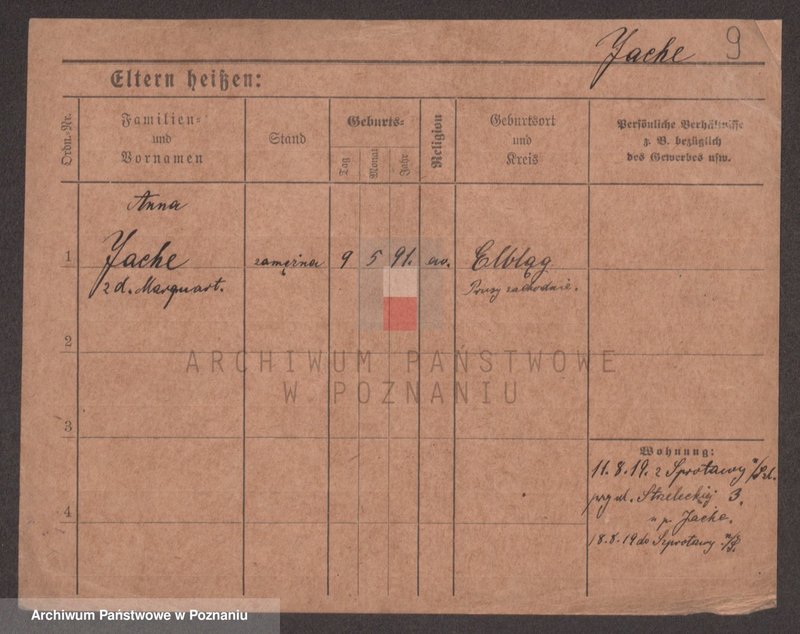 Jache 9
Eltern heißen:
Ordn.-Nr.
Familien-
und
Vornamen
Stand
Geburts-
Tag
Monat
Jahr
Religion
Geburtsort
und
Kreis
Persönliche Verhältnisse
z. B. bezüglich
des Gewerbes usw.
Anna
1 Jache zamężna 9 5 91. ew. Elbląg
z d. Marquart. Prusy zachodnie.
2
ARCHIWUM PAŃSTWOWE
W POZNANIU
3
Wohnung:
11.8.19. z Sprotawy n/Szl.
prz ul. Strzeleckiej 3.
u p. Jache.
4
18.8.19 do Szprotawy
Archiwum Państwowe w Poznaniu